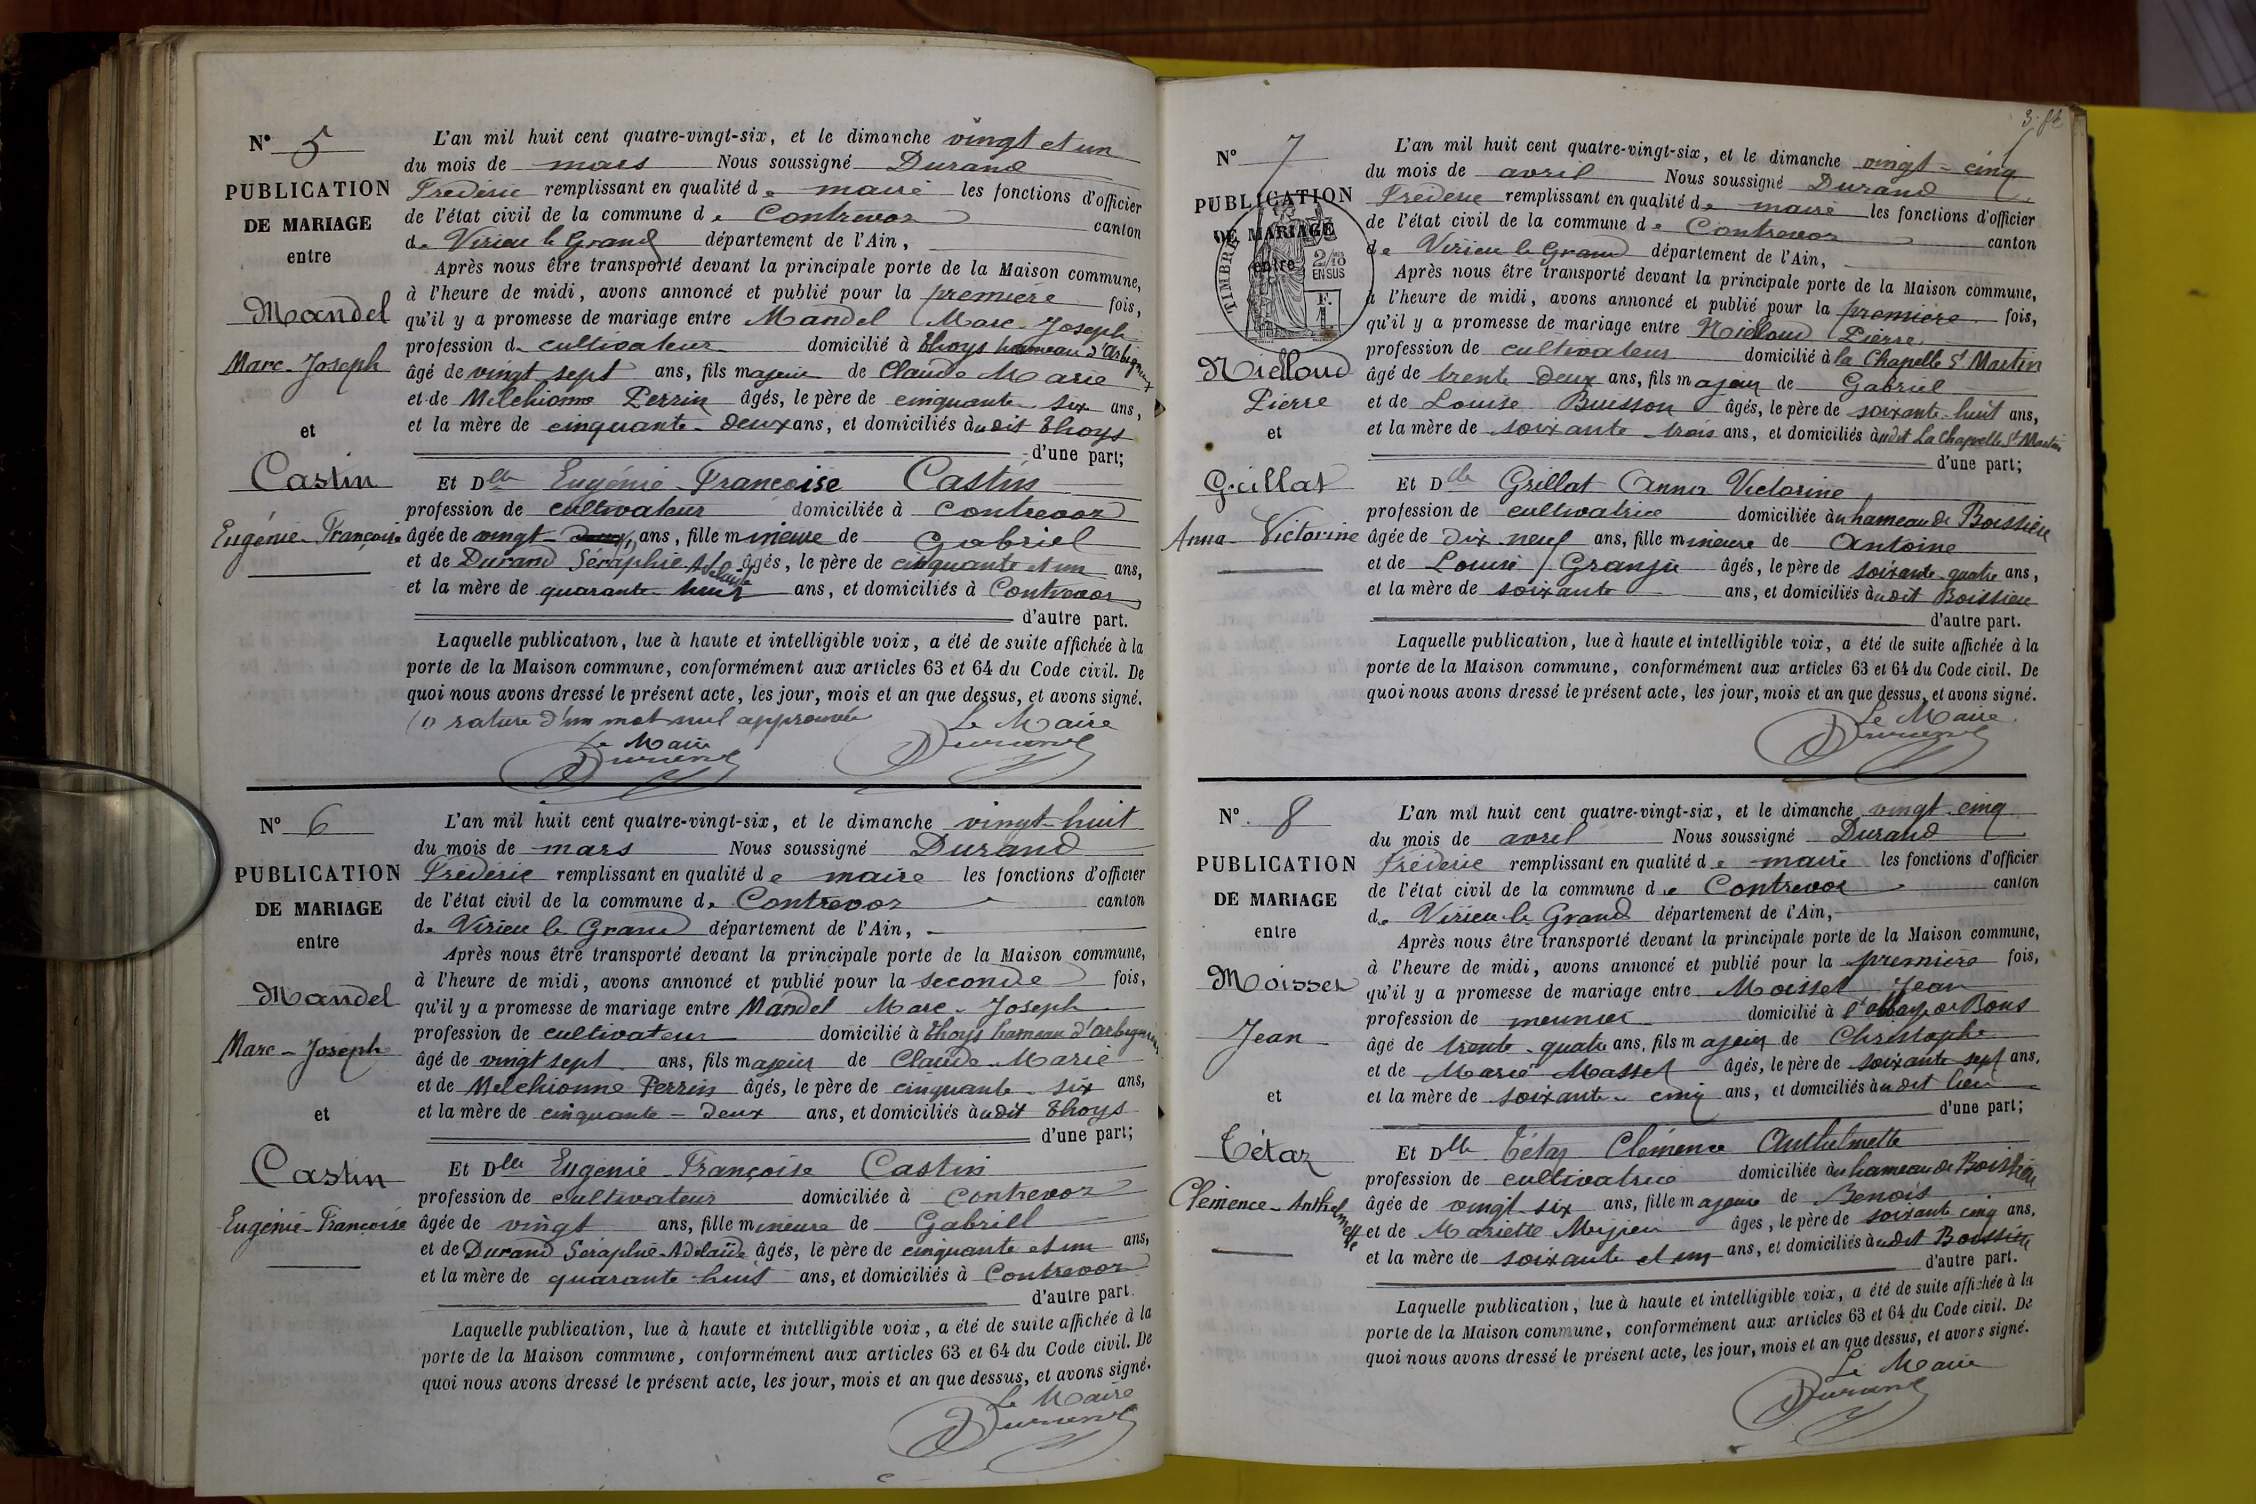 N° 5
PUBLICATION
DE MARIAGE
entre
Mandel
Marc-Joseph
et
Castin
Eugénie-Françoise
L'an mil huit cent quatre-vingt-six, et le dimanche vingt et un
du mois de mars Nous soussigné Durand
Frédéric remplissant en qualité de maire les fonctions d'officier
de l'état civil de la commune de Contrevoz canton
de Virieu le Grand département de l'Ain,
Après nous être transporté devant la principale porte de la Maison commune,
à l'heure de midi, avons annoncé et publié pour la première fois,
qu'il y a promesse de mariage entre Mandel Marc-Joseph
profession de cultivateur domicilié à Thoys hameau d'Arbignieu
âgé de vingt sept ans, fils majeur de Claude Marie
et de Melchionne Perrin âgés, le père de cinquante-six ans,
et la mère de cinquante-deux ans, et domiciliés audit Thoys
d'une part;
Et Dlle Eugénie-Françoise Castin
profession de cultivateur domiciliée à Contrevoz
âgée de vingt ans, fille mineure de Gabriel
et de Durand Séraphie-Adelaïde âgés, le père de cinquante et un ans,
et la mère de quarante-huit ans, et domiciliés à Contrevoz
d'autre part.
Laquelle publication, lue à haute et intelligible voix, a été de suite affichée à la
porte de la Maison commune, conformément aux articles 63 et 64 du Code civil. De
quoi nous avons dressé le présent acte, les jour, mois et an que dessus, et avons signé.
(1) rature d'un mot nul approuvée Le Maire
Le Maire Durand
Durand
N° 6
PUBLICATION
DE MARIAGE
entre
Mandel
Marc-Joseph
et
Castin
Eugénie-Françoise
L'an mil huit cent quatre-vingt-six, et le dimanche vingt-huit
du mois de mars Nous soussigné Durand
Frédéric remplissant en qualité de maire les fonctions d'officier
de l'état civil de la commune de Contrevoz canton
de Virieu le Grand département de l'Ain,
Après nous être transporté devant la principale porte de la Maison commune,
à l'heure de midi, avons annoncé et publié pour la seconde fois,
qu'il y a promesse de mariage entre Mandel Marc-Joseph
profession de cultivateur domicilié à Thoys hameau d'Arbignieu
âgé de vingt sept ans, fils majeur de Claude-Marie
et de Melchionne Perrin âgés, le père de cinquante-six ans,
et la mère de cinquante-deux ans, et domiciliés audit Thoys
d'une part;
Et Dlle Eugénie-Françoise Castin
profession de cultivateur domiciliée à Contrevoz
âgée de vingt ans, fille mineure de Gabriel
et de Durand Séraphie-Adelaïde âgés, le père de cinquante et un ans,
et la mère de quarante-huit ans, et domiciliés à Contrevoz
d'autre part.
Laquelle publication, lue à haute et intelligible voix, a été de suite affichée à la
porte de la Maison commune, conformément aux articles 63 et 64 du Code civil. De
quoi nous avons dressé le présent acte, les jour, mois et an que dessus, et avons signé.
Le Maire
Durand
N° 7
PUBLICATION
DE MARIAGE
entre
TIMBRE
2/10
EN SUS
Niélloud
Pierre
et
Grillat
Anna-Victorine
L'an mil huit cent quatre-vingt-six, et le dimanche vingt-cinq
du mois de avril Nous soussigné Durand
Frédéric remplissant en qualité de maire les fonctions d'officier
de l'état civil de la commune de Contrevoz canton
de Virieu le Grand département de l'Ain,
Après nous être transporté devant la principale porte de la Maison commune,
à l'heure de midi, avons annoncé et publié pour la première fois,
qu'il y a promesse de mariage entre Niélloud Pierre
profession de cultivateur domicilié à la Chapelle St Martin
âgé de trente deux ans, fils majeur de Gabriel
et de Louise Buisson âgés, le père de soixante-huit ans,
et la mère de soixante trois ans, et domiciliés audit La Chapelle St Martin
d'une part;
Et Dlle Grillat Anna Victorine
profession de cultivatrice domiciliée au hameau de Boissieu
âgée de dix neuf ans, fille mineure de Antoine
et de Louise Granju âgés, le père de soixante-quatre ans,
et la mère de soixante ans, et domiciliés audit Boissieu
d'autre part.
Laquelle publication, lue à haute et intelligible voix, a été de suite affichée à la
porte de la Maison commune, conformément aux articles 63 et 64 du Code civil. De
quoi nous avons dressé le présent acte, les jour, mois et an que dessus, et avons signé.
Le Maire
Durand
N° 8
PUBLICATION
DE MARIAGE
entre
Moisset
Jean
et
Tétaz
Clémence-Anthelmette
L'an mil huit cent quatre-vingt-six, et le dimanche vingt-cinq
du mois de avril Nous soussigné Durand
Frédéric remplissant en qualité de maire les fonctions d'officier
de l'état civil de la commune de Contrevoz canton
de Virieu le Grand département de l'Ain,
Après nous être transporté devant la principale porte de la Maison commune,
à l'heure de midi, avons annoncé et publié pour la première fois,
qu'il y a promesse de mariage entre Moisset Jean
profession de meunier domicilié à l'abbaye de Bons
âgé de trente-quatre ans, fils majeur de Christophe
et de Marie Masset âgés, le père de soixante sept ans,
et la mère de soixante-cinq ans, et domiciliés audit lieu
d'une part;
Et Dlle Tétaz Clémence Anthelmette
profession de cultivatrice domiciliée au hameau de Boissieu
âgée de vingt-six ans, fille majeure de Benoit
et de Mariette âgés, le père de soixante cinq ans,
et la mère de soixante et un ans, et domiciliés audit Boissieu
d'autre part.
Laquelle publication, lue à haute et intelligible voix, a été de suite affichée à la
porte de la Maison commune, conformément aux articles 63 et 64 du Code civil. De
quoi nous avons dressé le présent acte, les jour, mois et an que dessus, et avons signé.
Le Maire
Durand